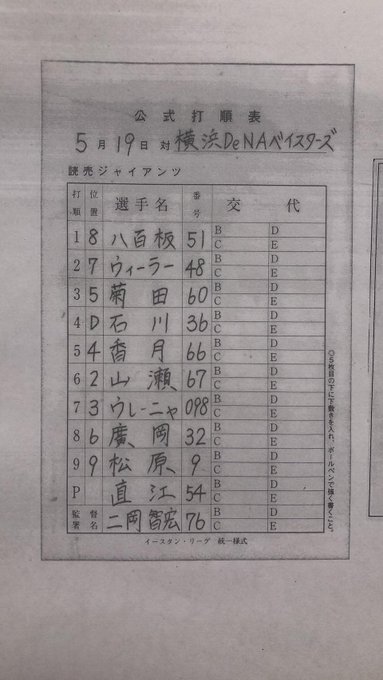 公式打順表
5月19日 対 横浜DeNAベイスターズ
読売ジャイアンツ
打順 位置 選手名 番号 交代
1 8 八百板 51 B D C E
2 7 ウィーラー 48 B D C E
3 5 菊田 60 B D C E
4 D 石川 36 B D C E
5 4 香月 66 B D C E
6 2 山瀬 67 B D C E
7 3 ウレーニャ 098 B D C E
8 6 廣岡 32 B D C E
9 9 松原 9 B D C E
P 直江 54 B D C E
監督署名 二岡智宏 76 B D C E
◎5枚目の下に下敷きを入れ、ボールペンで強く書くこと。
イースタン・リーグ 統一様式